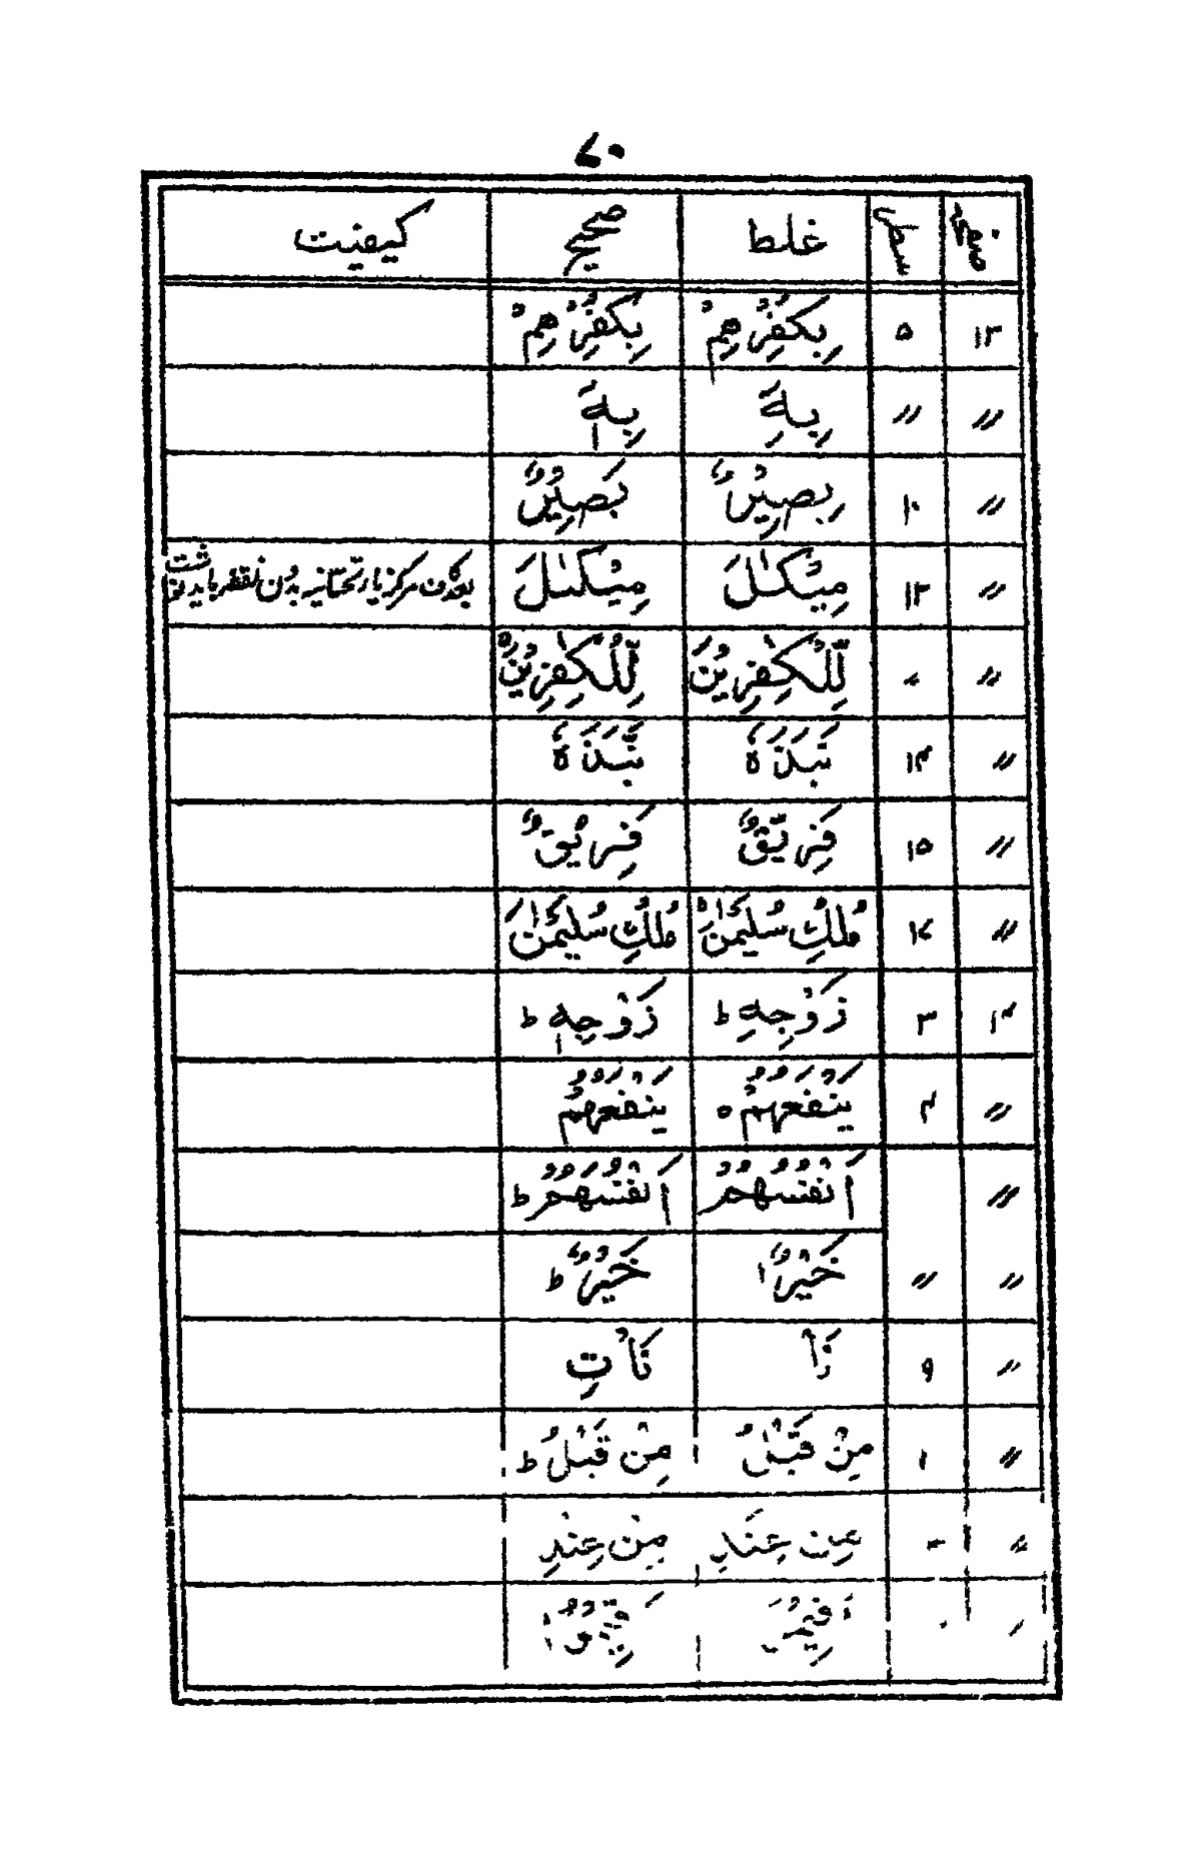 ۷۰
صفحہ سطر غلط صحیح کیفیت
۱۳ ۵ بِکُفْرِھِمْ بِکُفْرِھِمْ
〃 〃 بِہٖٓ
〃 ۱۰ بِصِیْرٌ بَصِیْرٌۢ
〃 ۱۳ مِیْکٰلَ مِیْکٰىلَ بعد کاف مرکز یاء تحتانیہ بدون نقطہ باید نوشت
〃 〃 لِّلْکٰفِرِیْنَ لِّلْکٰفِرِیْنَ
〃 ۱۴ نَبَذَہٗ نَّبَذَہٗ
〃 ۱۵ فَرِیْقٌ فَرِیْقٌ
〃 ۱۷ مُلْکِ سُلَیْمٰنَ مُلْکِ سُلَیْمٰنَ
۱۴ ۳ زَوْجِہِ ط زَوْجِہٖ ط
〃 ۴ یَنْفَعُهُمْ ہ یَنْفَعُهُمْ
〃 اَنْفُسَهُمْ اَنْفُسَهُمْ ط
〃 〃 خَیْرٌ خَیْرٌ ط
〃 ۹ نَاْ نَاْتِ
〃 ۱ مِنْ قَبْلُ مِنْ قَبْلُ ط
〃 مِن عِنَدِ مِنْ عِنْدِ